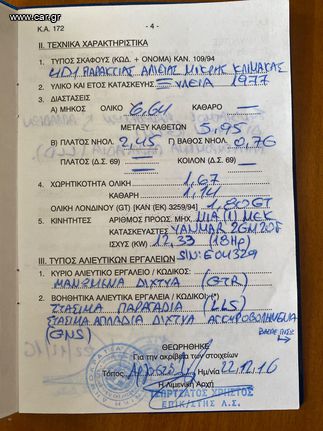 www.car.gr
Κ.Α. 172
- 4 -
ΙΙ. ΤΕΧΝΙΚΑ ΧΑΡΑΚΤΗΡΙΣΤΙΚΑ
1. ΤΥΠΟΣ ΣΚΑΦΟΥΣ (ΚΩΔ. + ΟΝΟΜΑ) ΚΑΝ. 109/94
4Δ1 ΠΑΡΑΚΤΙΑΣ ΑΛΙΕΙΑΣ ΜΙΚΡΗΣ ΚΛΙΜΑΚΑΣ
2. ΥΛΙΚΟ ΚΑΙ ΕΤΟΣ ΚΑΤΑΣΚΕΥΗΣ = ΞΥΛΕΙΑ 1977
3. ΔΙΑΣΤΑΣΕΙΣ
Α) ΜΗΚΟΣ ΟΛΙΚΟ 6,64 ΚΑΘΑΡΟ —
ΜΕΤΑΞΥ ΚΑΘΕΤΩΝ 5,95
Β) ΠΛΑΤΟΣ ΝΗΟΛ. 2,45 Γ) ΒΑΘΟΣ ΝΗΟΛ. 0,76
ΠΛΑΤΟΣ (Δ.Σ. 69) — ΚΟΙΛΟΝ (Δ.Σ. 69) —
4. ΧΩΡΗΤΙΚΟΤΗΤΑ ΟΛΙΚΗ 1,67
ΚΑΘΑΡΗ 1,14
ΟΛΙΚΗ ΛΟΝΔΙΝΟΥ (GT) [ΚΑΝ (ΕΚ) 3259/94] 1,80 GT
5. ΚΙΝΗΤΗΡΕΣ ΑΡΙΘΜΟΣ ΠΡΟΩΣ. ΜΗΧ. ΜΙΑ (1) ΜΕΚ
ΚΑΤΑΣΚΕΥΑΣΤΗΣ YANMAR 2GM20F
ΙΣΧΥΣ (KW) 12,33 (18Hp)
ΙΙΙ. ΤΥΠΟΣ ΑΛΙΕΥΤΙΚΩΝ ΕΡΓΑΛΕΙΩΝ S/N: E04329
1. ΚΥΡΙΟ ΑΛΙΕΥΤΙΚΟ ΕΡΓΑΛΕΙΟ / ΚΩΔΙΚΟΣ:
ΜΑΝΩΜΕΝΑ ΔΙΧΤΥΑ (GTR)
2. ΒΟΗΘΗΤΙΚΑ ΑΛΙΕΥΤΙΚΑ ΕΡΓΑΛΕΙΑ / ΚΩΔΙΚΟΙ:(*)
ΣΤΑΣΙΜΑ ΠΑΡΑΓΑΔΙΑ (LLS)
ΣΤΑΣΙΜΑ ΑΠΛΑΔΙΑ ΔΙΧΤΥΑ
(GNS)
ΘΕΩΡΗΘΗΚΕ
Για την ακρίβεια των στοιχείων
Τόπος Ημ/νία 22.12.16
Η Λιμενική Αρχή
ΧΡΗΣΤΟΣ
ΕΠΙΚ/ΣΤΗΣ Λ.Σ.